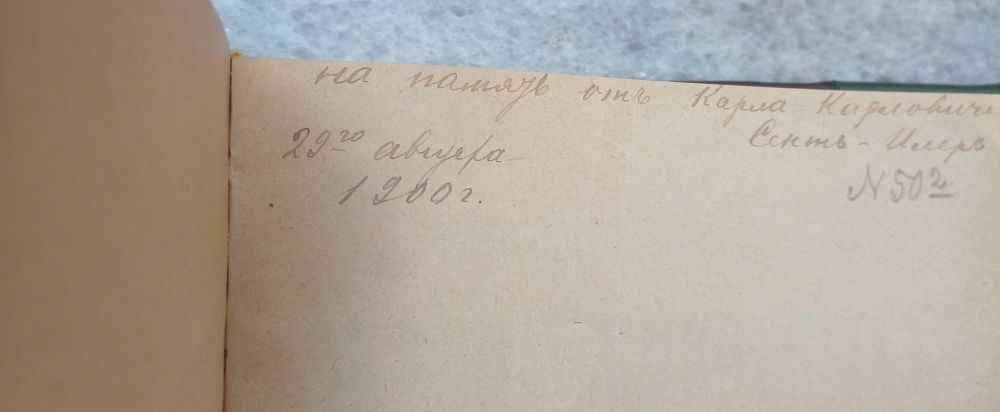 на память отъ Карла Карловича
Сентъ-Илеръ
29го августа
1900г.
N 502